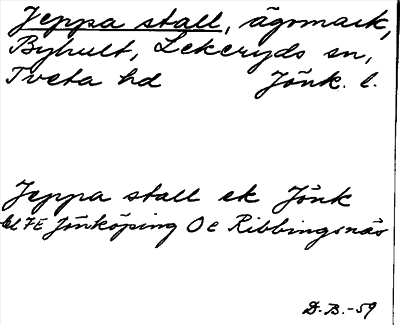 Jeppa stall, ägomark,
Byhult, Lekeryds sn,
Tveta hd Jönk. l.
Jeppa stall ek Jönk
bl 7E Jönköping Oe Ribbingsnäs
D. B. -59